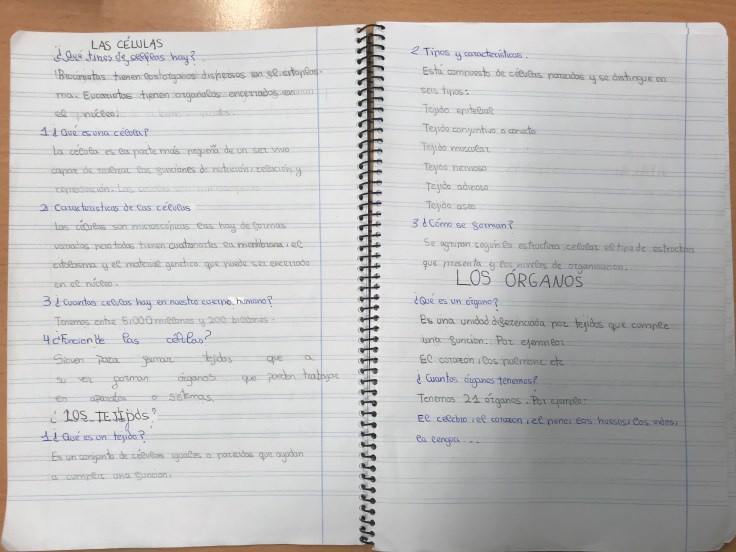 LAS CÉLULAS
¿Qué tipos de celulas hay?
Procariotas tienen los organos dispersos en el citoplas
ma. Eucariotas tienen organulos encerrados en
el núcleo.
1 ¿Qué es una célula?
La célula es la parte más pequeña de un ser vivo
capaz de realizar las funciones de nutrición, relación y
reproducción.
2 Caracteristicas de las células
Las células son microscópicas las hay de formas
variadas pero todas tienen la membrana, el
citoplasma y el material genetico que puede ser encerrado
en el núcleo.
3 ¿Cuantas celulas hay en nuestro cuerpo humano?
Tenemos entre 5.000 millones y 200 billones.
4 ¿Funcion de las células?
Sirven para formar tejidos que a
su vez forman órganos que pueden trabajar
en aparatos o sistemas.
¿LOS TEJIDOS?
1 ¿Qué es un tejido?
Es un conjunto de células iguales o parecidas que ayudan
a cumplir una funcion.
2 Tipos y caracteristicas.
Está compuesto de células parecidas y se distingue en
seis tipos:
Tejido epitelial
Tejido conjuntivo o conecto
Tejido muscular
Tejido nervioso
Tejido adiposo
Tejido oseo
3 ¿Cómo se forman?
Se agrupan según la estructura celular el tipo de estructura
que presenta y los niveles de organizacion.
LOS ÓRGANOS
¿Qué es un órgano?
Es una unidad diferenciada por tejidos que cumple
una funcion. Por ejemplo:
El corazon, los pulmones etc
¿Cuantos órganos tenemos?
Tenemos 21 órganos. Por ejemplo:
El celebro, el corazon, el pene, los huesos, los
la lengua...